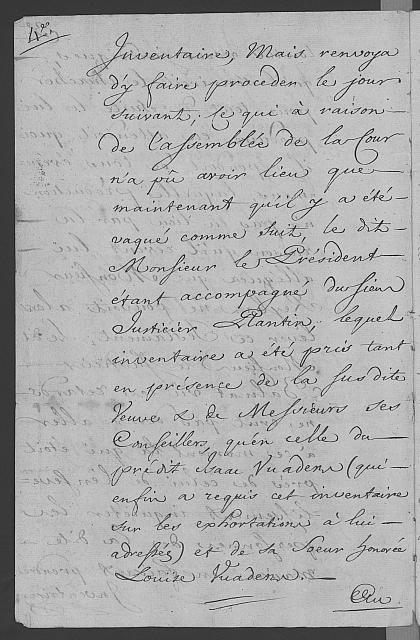 Inventaire, Mais renvoya
d'y faire proceder le jour
suivant, ce qui à raison
de l'assemblée de la Cour
n'a pû avoir lieu que
maintenant qu'il y a été
vaqué comme suit, le dit
Monsieur le Président
étant accompagné du sieur
Justicier Plantin, lequel
inventaire a été pris tant
en présence de la susdite
Veuve & de Messieurs ses
Conseillers, qu'en celle du
prédit Isaac Vuadens (qui
enfin a requis cet inventaire
sur les exhortations à lui
adressés) et de sa Soeur honorée
Louise Vuadens. —
Au